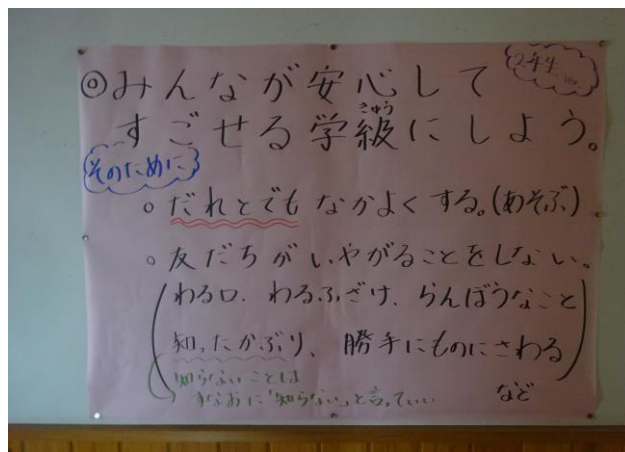 2年生 ver.
◎みんなが安心して
すごせる学級にしよう。
きゅう
そのために
○だれとでもなかよくする。(あそぶ)
○友だちがいやがることをしない。
(わる口、わるふざけ、らんぼうなこと
知ったかぶり、勝手にものにさわる)
知らないことは
すなおに「知らない」と言っていい
など